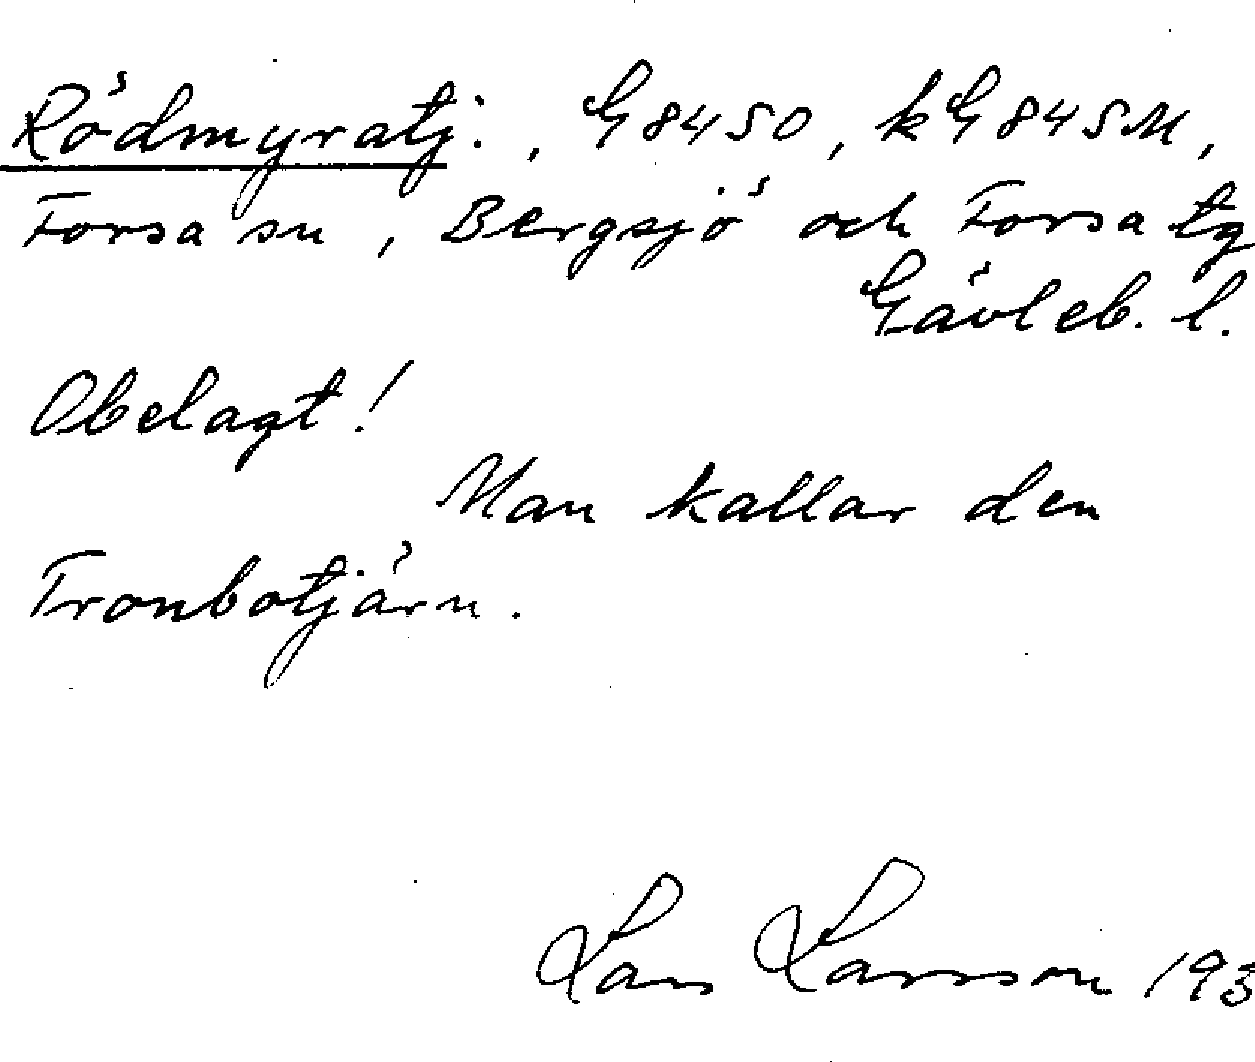 Rödmyratj. , G 84 SO , kG 84 SM ,
Forsa sn , Bergsjö och Forsa tg
Gävleb. l.
Obelagt !
Man kallar den
Tronbotjärn .
Lars Larsson 193